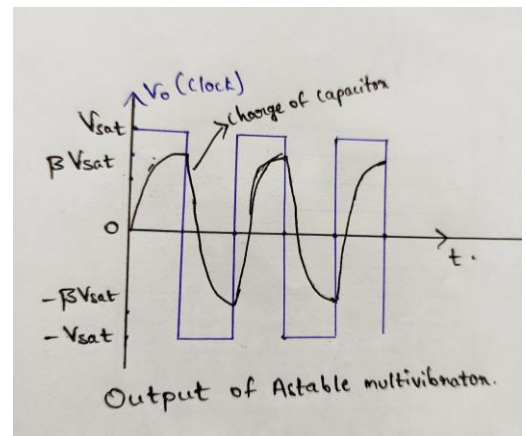 V₀ (Clock)
charge of capacitor
Vsat
β Vsat
0
t.
-βVsat
- Vsat
Output of Astable multivibrator.